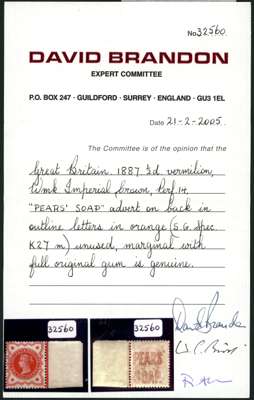 No 32560.
DAVID BRANDON
EXPERT COMMITTEE
P.O. BOX 247 · GUILDFORD · SURREY · ENGLAND · GU3 1EL
Date 21-2-2005.
The Committee is of the opinion that the
Great Britain, 1887 ½d vermilion,
Wmk Imperial Crown, Perf. 14,
"PEARS' SOAP" advert on back in
outline letters in orange (S.G. Spec
K27 m) unused, marginal with
full original gum is genuine.
David Brandon
32560 32560
PEARS
SOAP